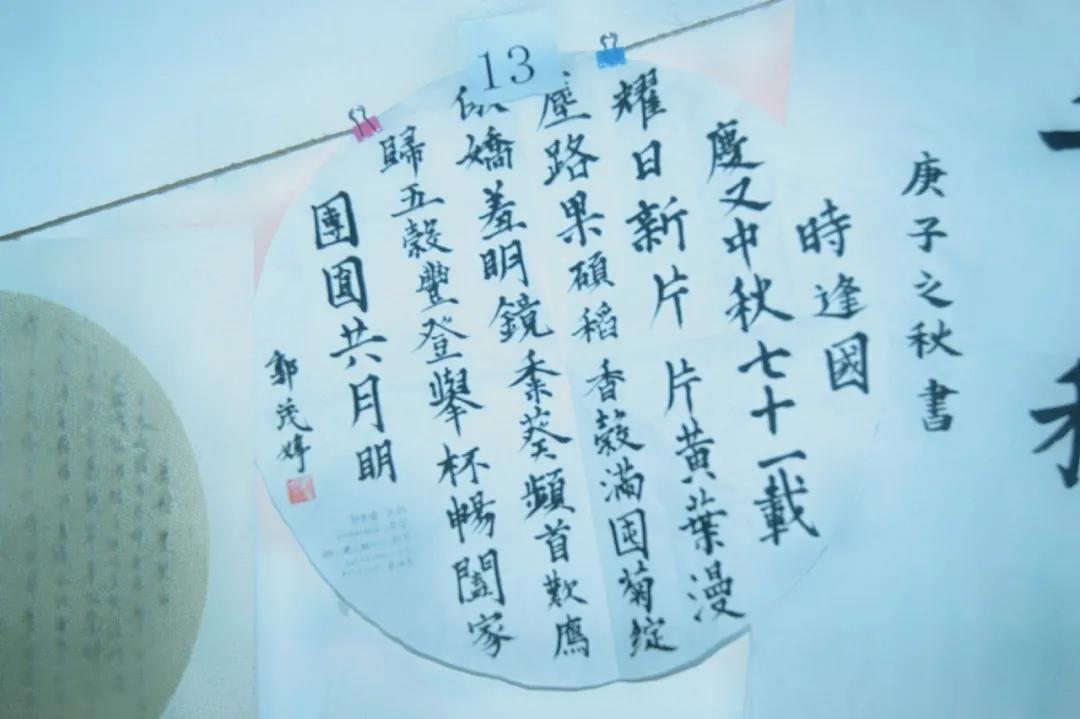 13
庚子之秋書
時逢國
慶又中秋七十一載
耀日新片片黃葉漫
路果碩稻香穀滿囤菊綻
嬌羞明鏡黍葵頻首歎鷹
歸五穀豐登舉杯暢闔家
團圓共月明
郭茂婷